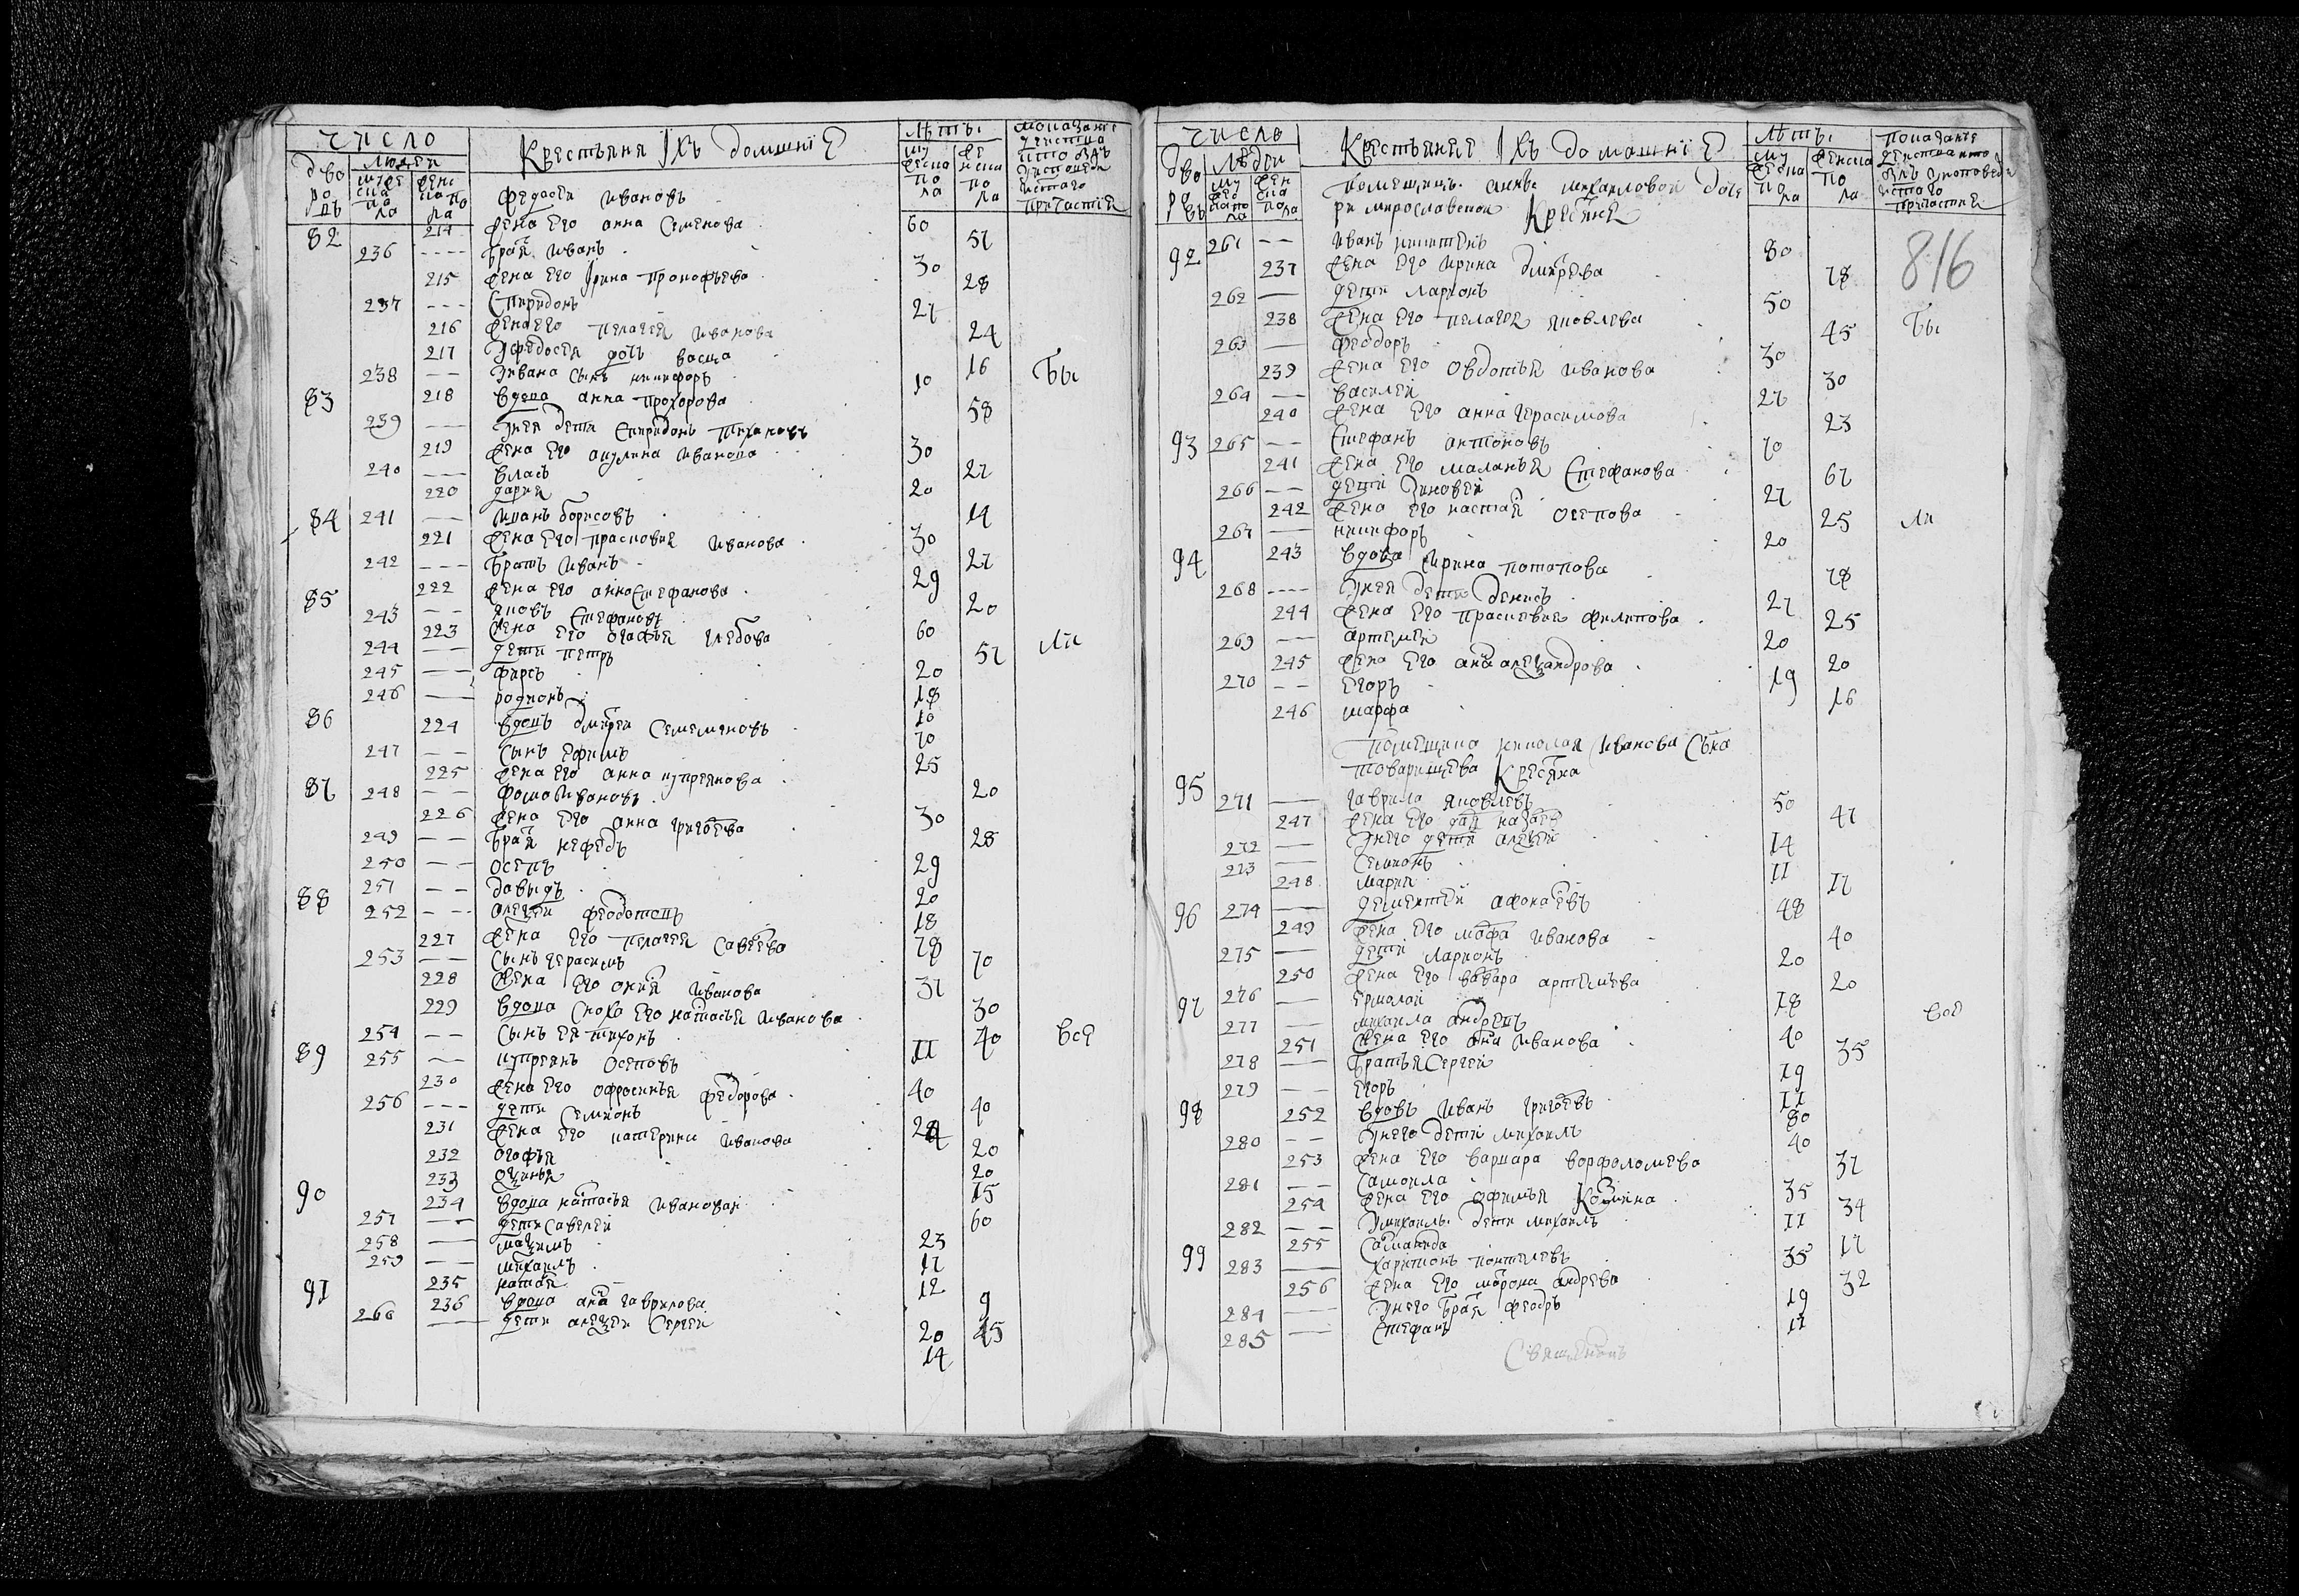 число
Крестьяня ихъ домашнїе
лѣтъ
дворовъ
людеи
показанїе действа кто былъ у исповеди и святаго причастїя
мужеска пола
женска пола
82 Федосеи Ивановъ 60
214 жена его анна Семенова 57
236 --- братъ Иванъ 30
215 жена его Iрина прокофьева 28
237 --- Спиридонъ 27
216 жена его пелагея Иванова 24
217 Уфедосея дочь васса 16
238 -- Уивана сынъ никифоръ 10
бы
83 218 вдова анна прохорова 58
239 --- Унея дети Спиридонъ тихановъ 30
219 жена его акулина Иванова 27
240 --- власъ 20
220 дария 14
84 241 --- Иванъ борисовъ 30
221 жена его прасковия Иванова 27
242 --- братъ Иванъ 29
222 жена его анна Стефанова 20
85 243 -- яковъ Стефановъ 60
223 жена его огафья глебова 57
ли
244 -- дети петръ 20
245 --- фирсъ 18
246 --- родионъ 10
86 224 вдовъ дмитреи Семемяновъ 70
247 -- Сынъ Ефимъ 25
225 жена его анна купреянова 20
87 248 -- фома Ивановъ 30
226 жена его анна григоева 28
249 -- братя нефедъ 29
250 -- осепъ 20
251 -- давыдъ 18
88 252 -- алеѯеи феодотовъ 78
227 жена его пелагея Савеева 70
253 -- Сынъ герасимъ 37
228 жена его Иванова 30
229 вдова Сноха его настасья Иванова 40
254 -- Сынъ ея тихонъ 11
все
89 255 -- купреянъ осеповъ 40
230 жена его офросинья федорова 40
256 --- дети Семионъ 24
231 жена его катерина Иванова 20
232 огофья 20
233 оѯинья 15
90 234 вдова настасья Ивановая 60
257 -- дети Савелеи 23
258 --- маѯимъ 17
259 -- михаилъ 12
235 настася 9
91 236 вдова анна гаврилова 45
260 --- дети алеѯеи Сергеи 20 14
число
Крестьянѣе ихъ домашнїе
лѣтъ
дворовъ
людеи
показанїе действа кто былъ у исповеди и святаго причастия
мужеска пола
женска пола
помещицы анны михаиловой доче
ри мирославской Крестяне
816
92 261 -- Иванъ никитенъ 80
237 жена его Ирина дмитрева 78
262 --- дети ларионъ 50
238 жена его пелагея яковлева 45
бы
263 --- феодоръ 30
239 жена его овдотья Иванова 30
264 -- василеи 27
240 жена его анна герасимова 23
93 265 -- Стефанъ антоновъ 70
241 жена его маланья Стефанова 67
266 -- дети Зиновеи 27
242 жена его настася осепова 25
ли
267 --- никифоръ 20
94 243 вдова Ирина потапова 78
268 ---- Унея дети денисъ 27
244 жена его прасковие филипова 25
269 -- артемеи 20
245 жена его анна алеѯандрова 20
270 -- Егоръ 19
246 марфа 16
помещика николая Иванова Сына
товарищева Крестяна
95 271 --- гаврила яковлевъ 50
247 жена его 47
272 --- Унего дети алеѯеи 14
273 --- Семионъ 11
248 Мария 17
96 274 --- дементеи афонаевъ 48
249 жена его марфа Иванова 40
275 --- дети ларионъ 20
250 жена его варвара артемева 20
276 --- Ермолаи 18
все
97 277 --- михаила андреевъ 40
251 жена его Иванова 35
278 --- братья Сергеи 19
279 --- Егоръ 11
98 252 вдовъ Иванъ григоевъ 80
280 -- Унего дети михаилъ 40
253 жена его варвара ворфоломева 37
281 -- Самоила 35
254 жена его офимья Козмина 34
282 -- Умихаилы дети михаилъ 11
255 17
99 283 --- харитонъ понтелевъ 35
256 жена его матрона андрева 32
284 --- Унего братя феодръ 19
285 --- Стефанъ 17
Священикъ